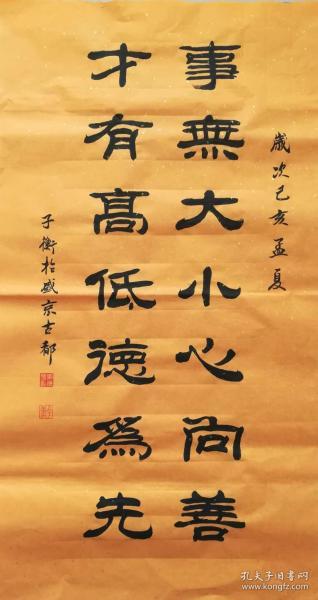 歲次己亥孟夏
事無大小心向善
才有高低德為先
子衡於盛京古都
孔夫子旧书网